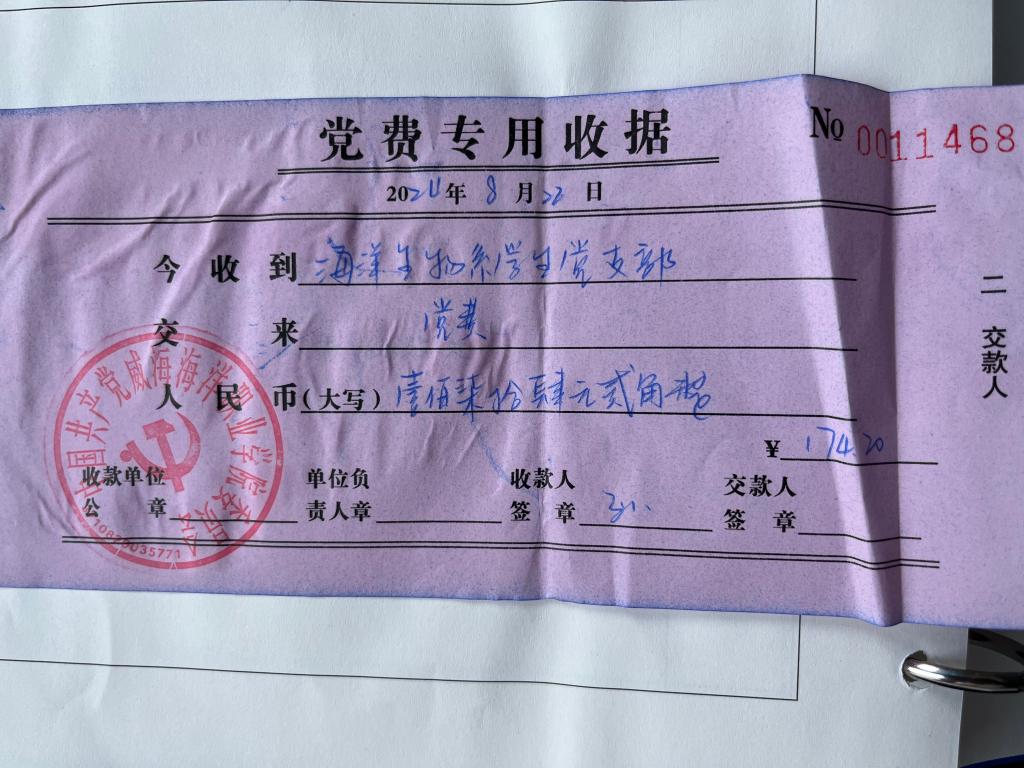 党费专用收据
No 0011468
2024年8月22日
今收到 海洋生物系学生党支部
交来 党费
人民币(大写) 壹佰柒拾肆元贰角整
¥ 174.20
收款单位 单位负 收款人 交款人
公章 责人章 签章 签章
二 交款人
中国共产党威海海洋职业学院委员会